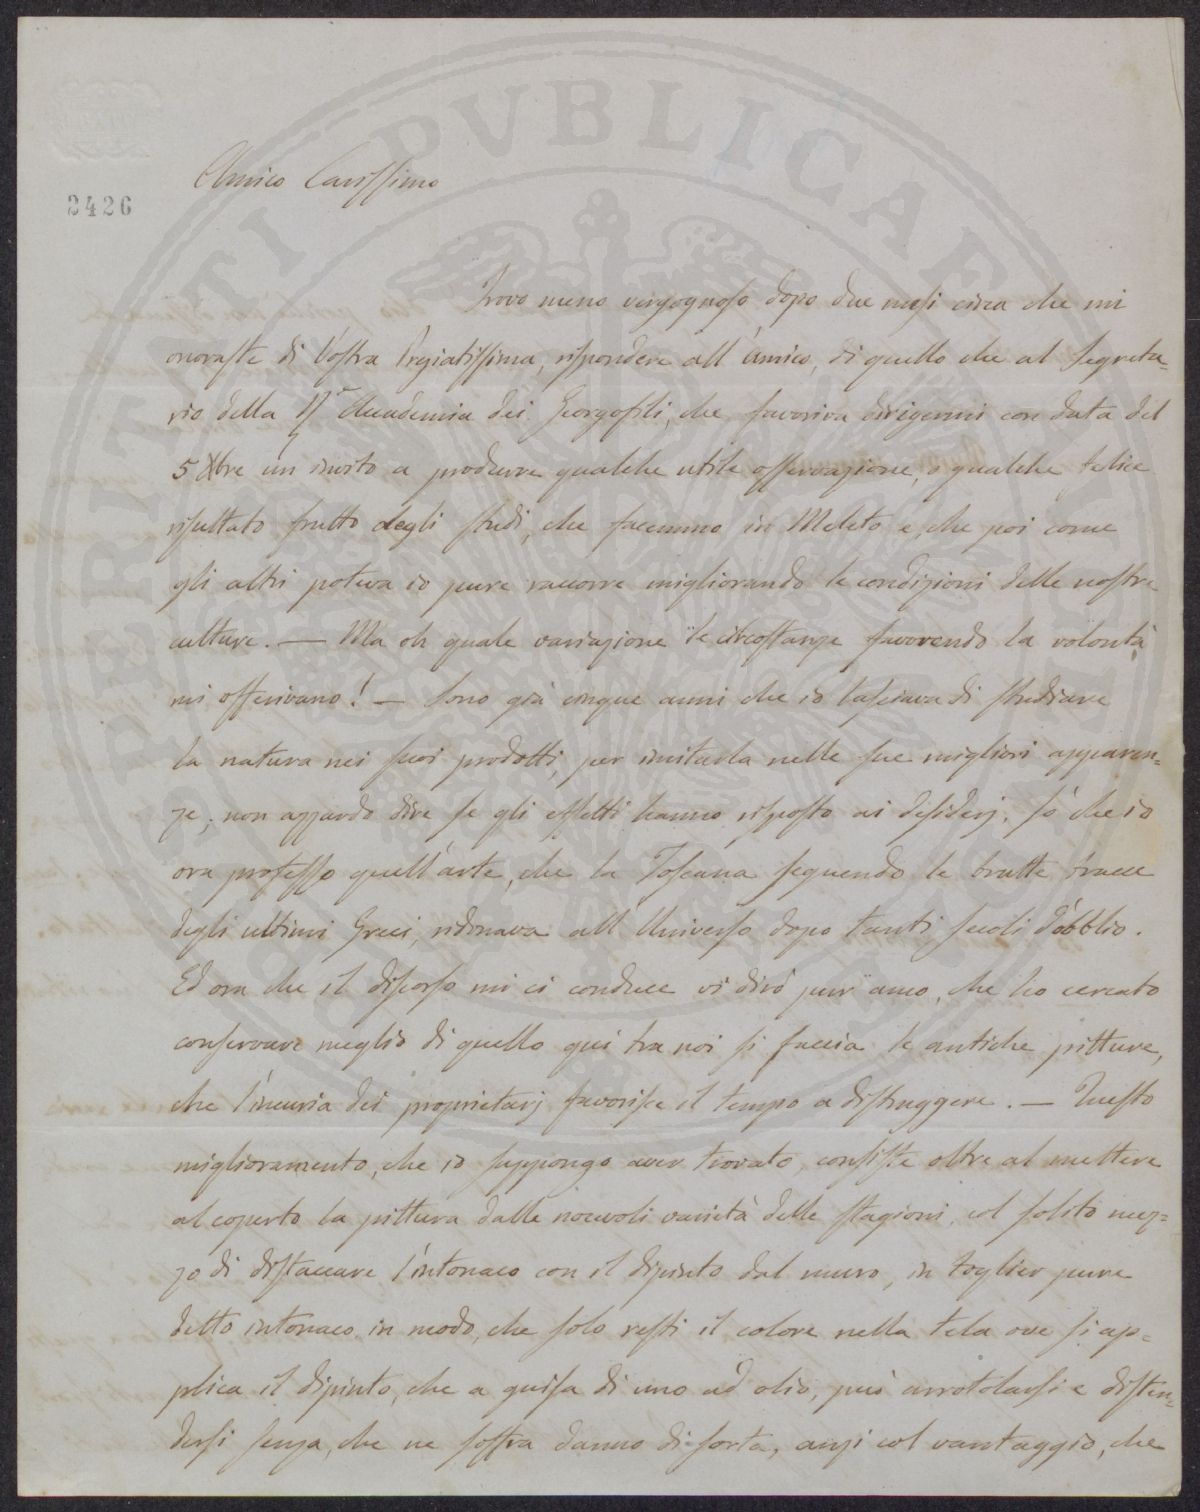 Amico Carissimo
2426
Trovo meno vergognoso dopo due mesi circa che mi
onoraste di Vostra Pregiatissima, rispondere all'amico, di quello che al Segreta=
rio della Rl Accademia dei Georgofili, che favoriva dirigermi con data del
5 Xbre un invito a produrre qualche utile osservazione, o qualche felice
risultato frutto degli studi, che facemmo in Meleto e, che poi come
gli altri poteva io pure raccorre migliorando le condizioni delle nostre
culture. — Ma oh quale variazione le circostanze favorendo la volontà
mi offerivano! — Sono già cinque anni che io lasciava di studiare
la natura nei suoi prodotti, per imitarla nelle sue migliori apparen=
ze; non azzardo dire se gli effetti hanno risposto ai desiderj. Sò che io
ora professo quell'arte, che la Toscana seguendo le brutte tracce
degli ultimi Greci, ridonava all'Universo dopo tanti secoli d'obblio.
Ed ora che il discorso mi ci conduce vi dirò pur anco, che ho cercato
conservare meglio di quello qui tra noi si faccia le antiche pitture,
che l'incuria dei proprietarj favorisce il tempo a distruggere. — Questo
miglioramento, che io suppongo aver trovato, consiste oltre al mettere
al coperto la pittura dalle nocevoli varietà delle stagioni, col solito mez=
zo di distaccare l'intonaco con il dipinto dal muro, in toglier pure
detto intonaco in modo, che solo resti il colore nella tela ove si ap=
plica il dipinto, che a guisa di uno ad olio, può arrotolarsi e disten=
dersi senza, che ne soffra danno di sorta, anzi col vantaggio, che